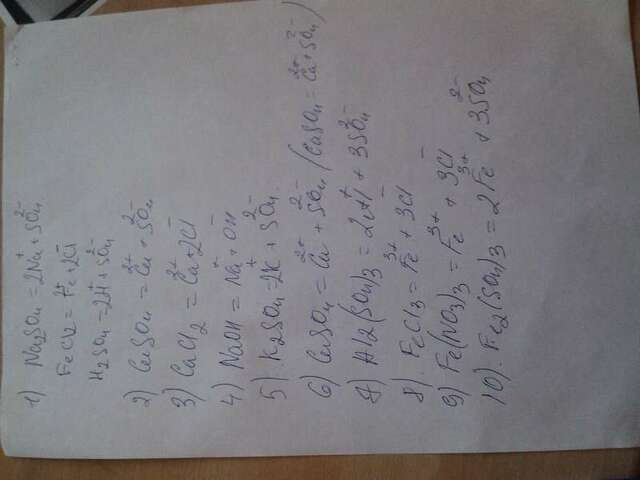 1) Na₂SO₄ = 2Na⁺ + SO₄²⁻
FeCl₂ = Fe²⁺ + 2Cl⁻
H₂SO₄ = 2H⁺ + SO₄²⁻
2) CuSO₄ = Cu²⁺ + SO₄²⁻
3) CaCl₂ = Ca²⁺ + 2Cl⁻
4) NaOH = Na⁺ + OH⁻
5) K₂SO₄ = 2K⁺ + SO₄²⁻
6) CuSO₄ = Cu²⁺ + SO₄²⁻ (CaSO₄ = Ca²⁺ + SO₄²⁻)
7) Al₂(SO₄)₃ = 2Al⁺ + 3SO₄²⁻
8) FeCl₃ = Fe³⁺ + 3Cl⁻
9) Fe(NO₃)₃ = Fe³⁺ + 3Cl⁻
10). Fe₂(SO₄)₃ = 2Fe³⁺ + 3SO₄²⁻